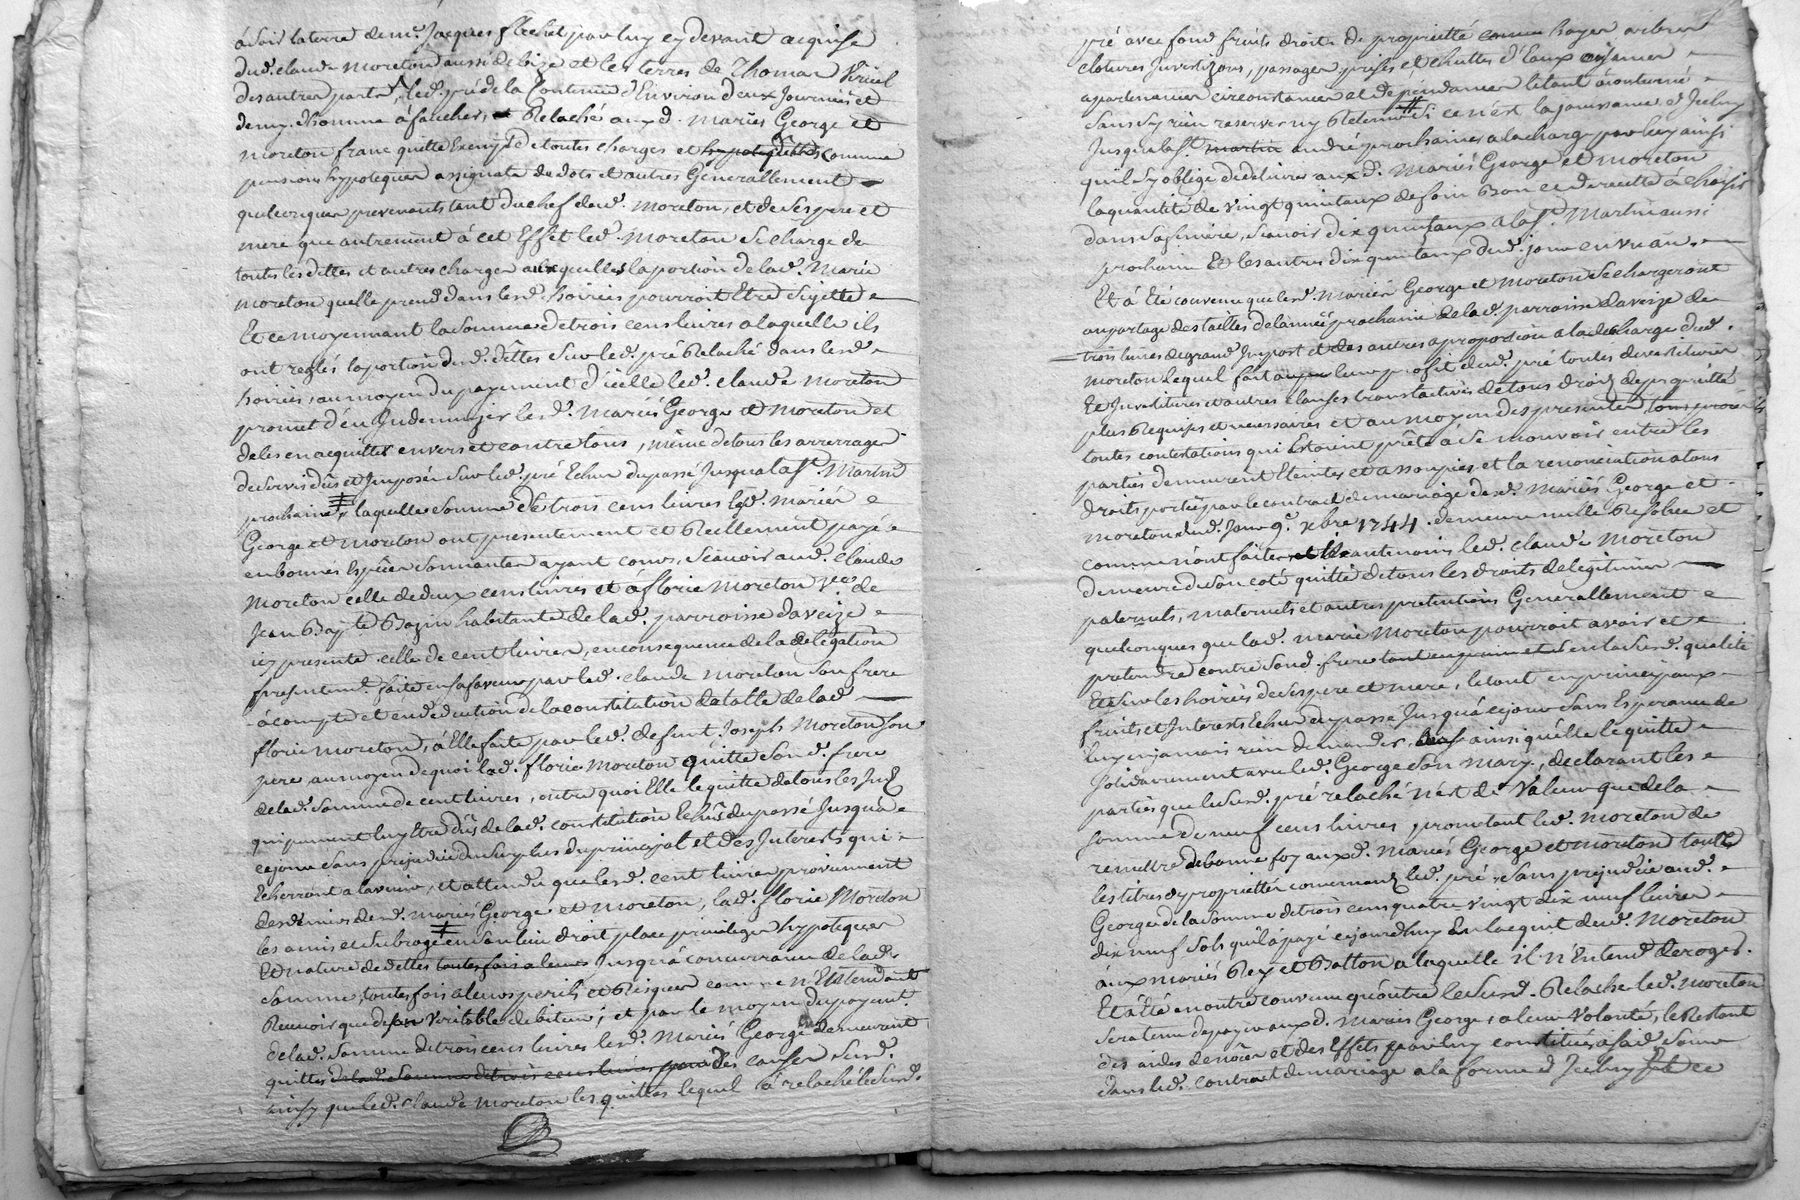 à soir la terre de mr. Jacques flechet par luy cy devant acquise
dud. claude Moreton aussi de bize et les terres de Thomas Viriel
des autres parts, led. pré de la Contenue d'Environ deux Journées et
demy d'homme à faucher, Relaché auxd. Mariés George et
Moreton franc quitte Exempt de toutes charges et hypoteques comme
pensions hypoteques assignats de dots et autres Generallement
quelconques provenants tant du chef dud. Moreton, et de ses pere et
mere que autrement à cet Effet led. Moreton se charge de
toutes les dettes et autres charges auxquelles la portion de lad. Marie
Moreton quelle prend dans lesd. hoiries pourroit Etre Sujette
Et ce moyennant la Somme de trois cens livres a laquelle ils
ont reglés la portion dud. dettes Sur led. pré Relaché dans lesd.
hoiries, au moyen du payement d'icelle led. claude Moreton
promet d'en Indemniser lesd. Mariés George et Moreton et
de les en acquitter envers et contre tous, même de tous les arrerages
de Servis dûs et Imposés Sur led. pré Echus du passé Jusqua la St. Martin
prochaine, laquelle Somme de trois cens livres lesd. Mariés
George et Moreton ont presentement et Réellement payé
en bonnes Especes Sonnantes ayant cours, Scavoir aud. Claude
Moreton celle de deux cens livres et à florie Moreton Vve. de
Jean Bapte Bazin habitante de lad. parroisse daveize
icy presente celle de cent livres, en consequence de la délégation
presentemt. faite en sa faveur par led. claude Moreton Son frere
à compte et en déduction de la constitution dotalle de lad.
florie Moreton, à Elle faite par led. defunt Joseph Moreton Son
pere au moyen de quoi lad. florie Moreton quitte Sond. frere
de lad. Somme de cent livres, outre quoi Elle le quitte de tous les Jnts
qui peuvent luy Etre dûs de lad. constitution Echûs du passé Jusqua
ce jour sans prejudice du Surplus du principal et des Interests qui
Echerront a lavenir, et attendu que lesd. cent livres proviennent
des deniers desd. Mariés George et Moreton, lad. florie Moreton
les a mis et subrogé en son lieu droit place privileges hypoteques
Et nature de dettes toutes fois a leurs Jusqu'à concurrance de lad.
Somme, toutes fois a leurs perils et Risques comme n'Entendant
Recevoir que de son veritable debiteur; et par le moyen du payemt.
de lad. Somme de trois cens livres lesd. Mariés George demeurent
quittes de lad. Somme de trois cens livres pour des causes susd.
ainsy que led. claude Moreton les quittes lequel à relaché le susd.
pré avec fond fruits droits de proprietté comme hayes arbres
clotures Investizons, passages prises et chuttes d'Eaux aisances
apartenances circonstances et dependances le tout à contenu
Sans sy rien reserver ny Retenir Si ce n'est la joüissance d Jceluy
Jusqua la St. martin andré prochaines a la charge par luy ainsi
qu'il sy oblige de délivrer auxd. Mariés George et Moreton
la quantité de vingt quintaux de foin Bon et de recette à choisir
dans sa feniere, Scavoir dix quintaux a la St. Martin aussi
prochaine Et les autres dix quintaux dud. jour en un an.
Et à Eté convenu que lesd. Mariés George et Moreton se chargeront
au partage des tailles de lannée prochaine de lad. parroisse daveize de
trois livres de grand Impost et des autres a proportion a la décharge dud.
Moreton Lequel fait a leur profit dud. pré toutes devestitures
et Investitures et autres clauses translatives de tous droits de proprietté
plus Requises et necessaires et au moyen des presentes tous procès
toutes contestations qui Estoient prêts à se mouvoir entre les
parties demeurent Eteintes et assoupies et la renonciation a tous
droits portée par le contract de mariage desd. Mariés George et
Moreton dud. Jour 9e. xbre 1744. demeure nulle Resolue et
comme non faite, et led. claude Moreton
demeure de son coté quitte de tous les droits de legitimes
paternels, maternels et autres pretentions Generallement
quelconques que lad. marie Moreton pourroit avoir et
pretendre contre Sond. frere tant en la Susd. qualité
Et Sur les hoiries de Ses pere et mere, le tout en principaux
fruits et Interests Echus du passé Jusqu'à ce jour Sans Esperance de
luy en jamais rien demander, ainsi qu'elle le quitte
Solidairement avec led. George Son Mary, declarant les
parties que le Susd. pré relaché n'est de Valeur que de la
Somme de neuf cens livres, promettant led. Moreton de
remettre de bonne foy auxd. Mariés George et Moreton toutes
les titres de proprietté concernant led. pré, Sans prejudice aud.
George de la Somme de trois cens quatre vingt dix neuf livres
dix neuf Sols qu'il à payé ce jourdhuy En lacquit dud. Moreton
aux mariés Rey et Batton a laquelle il n'Entend deroger.
Et à Eté en outre convenu qu'outre le Susd. Relaché led. Moreton
Sera tenu de payer auxd. Mariés George, a leur Volonté, le Restant
des aides de nôces et des Effets par luy constitués a sad. Soeur
dans led. contract de mariage a la forme d Jceluy ce